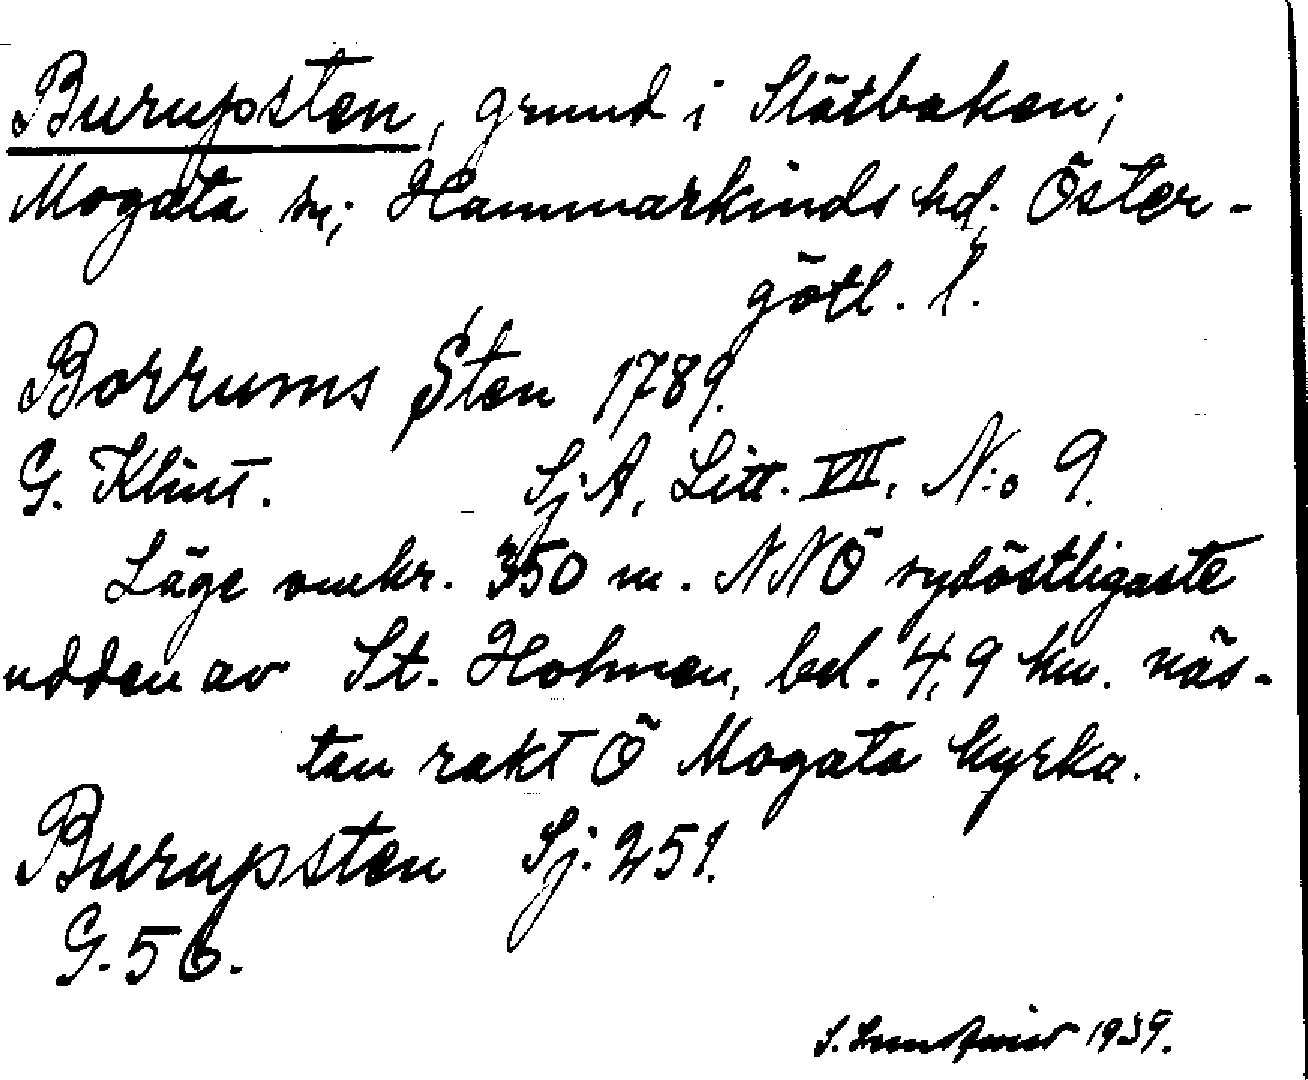 Burupsten, grund i Slätbaken;
Mogata sn; Hammarkinds hd; Öster-
götl. l.
Borrums Sten 1789.
G. Klint. SjA, Litt. VII, N:o 9.
Läge omkr. 350 m. NNÖ sydöstligaste
udden av St. Holmen, bel. 4,9 km. näs-
tan rakt Ö Mogata kyrka.
Burupsten Sj. 251.
G. 56.
S. 1939.